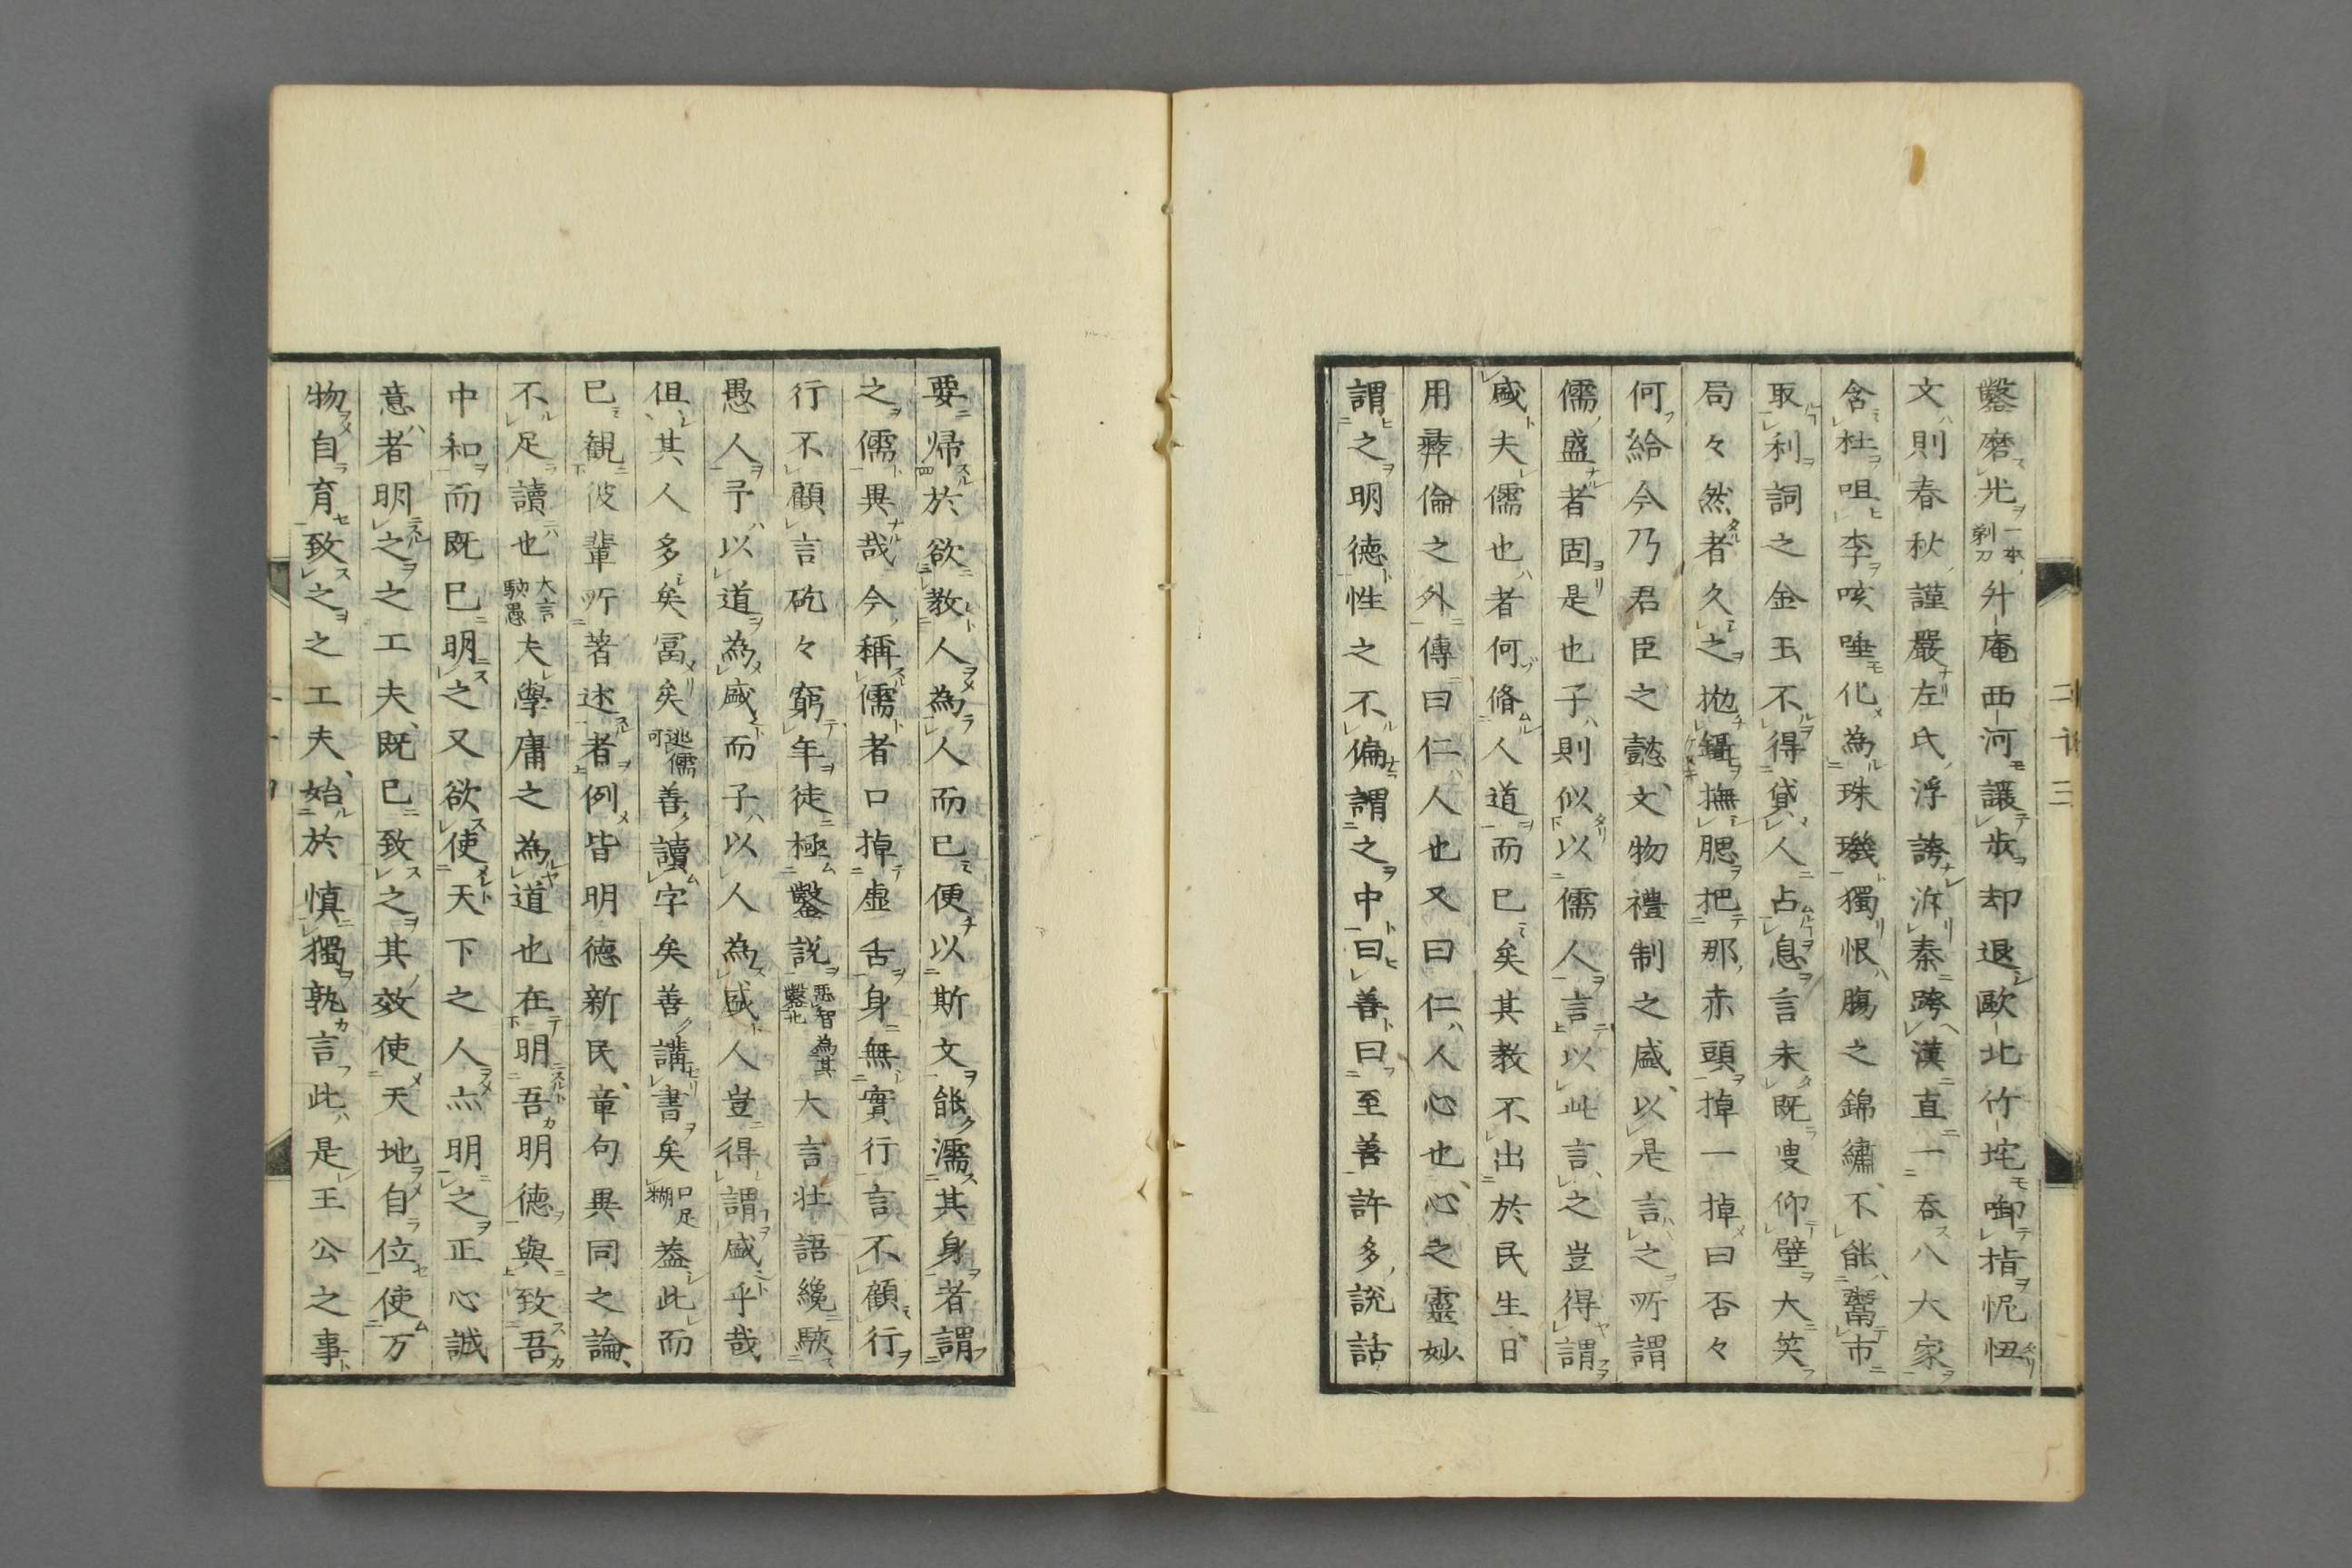 鑿磨光一本剃刀升庵西河讓歩却退歐北竹垞啣指怩忸
文則春秋謹嚴左氏浮誇泝秦跨漢直一吞八大家
含杜咀李咳唾化為珠璣獨恨腸之錦繡不能鬻市
取利詞之金玉不得貸人占息言未既叟仰壁大笑
局々然者久之抛鑷撫腮把那赤頭掉一掉曰否々
何給今乃君臣之懿文物禮制之盛以是言之所謂
儒盛者固是也子則似以儒人言以此言之豈得謂
盛夫儒也者何脩人道而已矣其教不出於民生日
用彝倫之外傳曰仁人也又曰仁人心也心之靈妙
謂之明德性之不偏謂之中曰善曰至善許多説話
要帰於欲教人為人而已便以斯文能濡其身者謂
之儒異哉今稱儒者口掉虛舌身無實行言不顧行
行不顧言矻々窮年徒極鑿説惡智為其鑿也大言壮語纔駭
愚人予以道為盛而子以人為盛人豈得謂盛乎哉
但其人多矣冨矣逃儒可善讀字矣善講書矣口足糊蓋此而
已観彼輩所著述者例皆明德新民章句異同之論
不足讀也大言駭愚夫學庸之為道也在明吾明德與致吾
中和而既已明之又欲使天下之人亦明之正心誠
意者明之之工夫既已致之其效使天地自位使万
物自育致之之工夫始於慎獨孰言此是王公之事